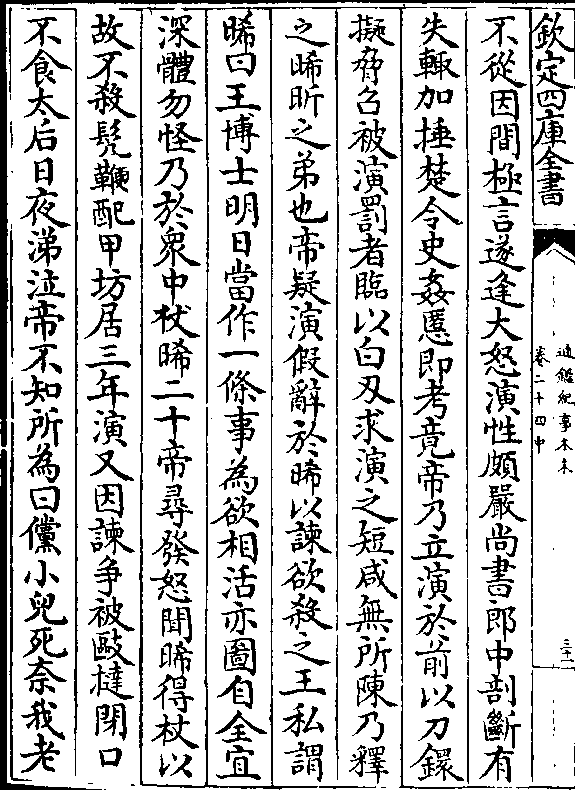 欽定四庫全書
通鑑紀事本末
卷二十四中
三十一
不從因間極言遂逢大怒演性頗嚴尚書郎中剖斷有
失輒加捶楚令史姦慝即考竟帝乃立演於前以刀鐶
擬脅召被演罰者臨以白刃求演之短咸無所陳乃釋
之晞昕之弟也帝疑演假辭於晞以諫欲殺之王私謂
晞曰王博士明日當作一條事為欲相活亦圖自全宜
深體勿怪乃於衆中杖晞二十帝尋發怒聞晞得杖以
故不殺髠鞭配甲坊居三年演又因諫争被毆撻閉口
不食太后日夜涕泣帝不知所為曰儻小兒死奈我老